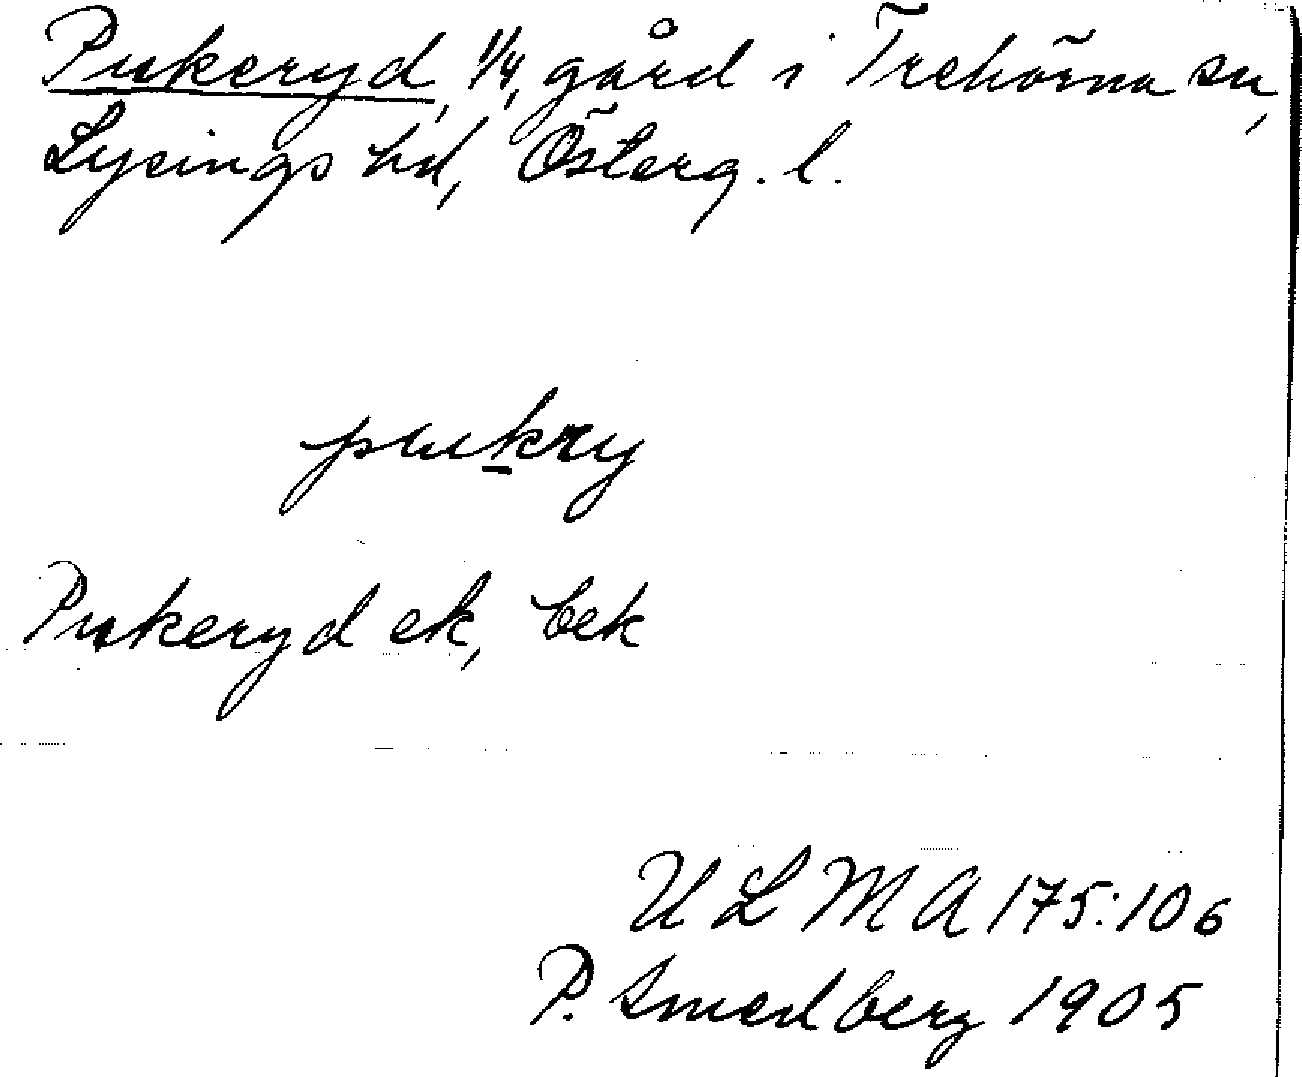 Pukeryd, 1/4, gård i Trehörna sn,
Lysings hd, Österg. l.
pukry
Pukeryd ek, bek
ULMA 175:106
P. Smedberg 1905